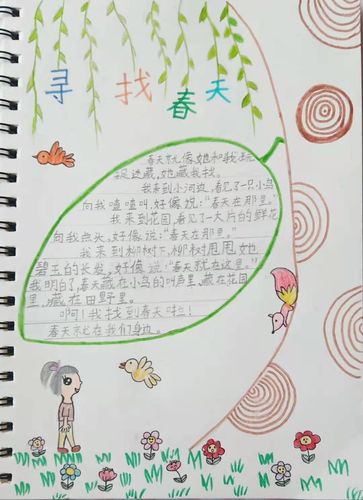 寻找春天
春天就像她和我玩
捉迷藏，她藏我找。
我来到小河边，看见了一只小鸟
向我喳喳叫，好像说：“春天在那里。”
我来到花园，看见了一大片的鲜花
向我点头，好像说：“春天在那里。”
我来到柳树下，柳树甩甩她
碧玉的长发，好像说：“春天就在这里。”
我明白了，春天藏在小鸟的叫声里，藏在花园
里，藏在田野里。
啊！我找到春天啦！
春天就在我们身边。